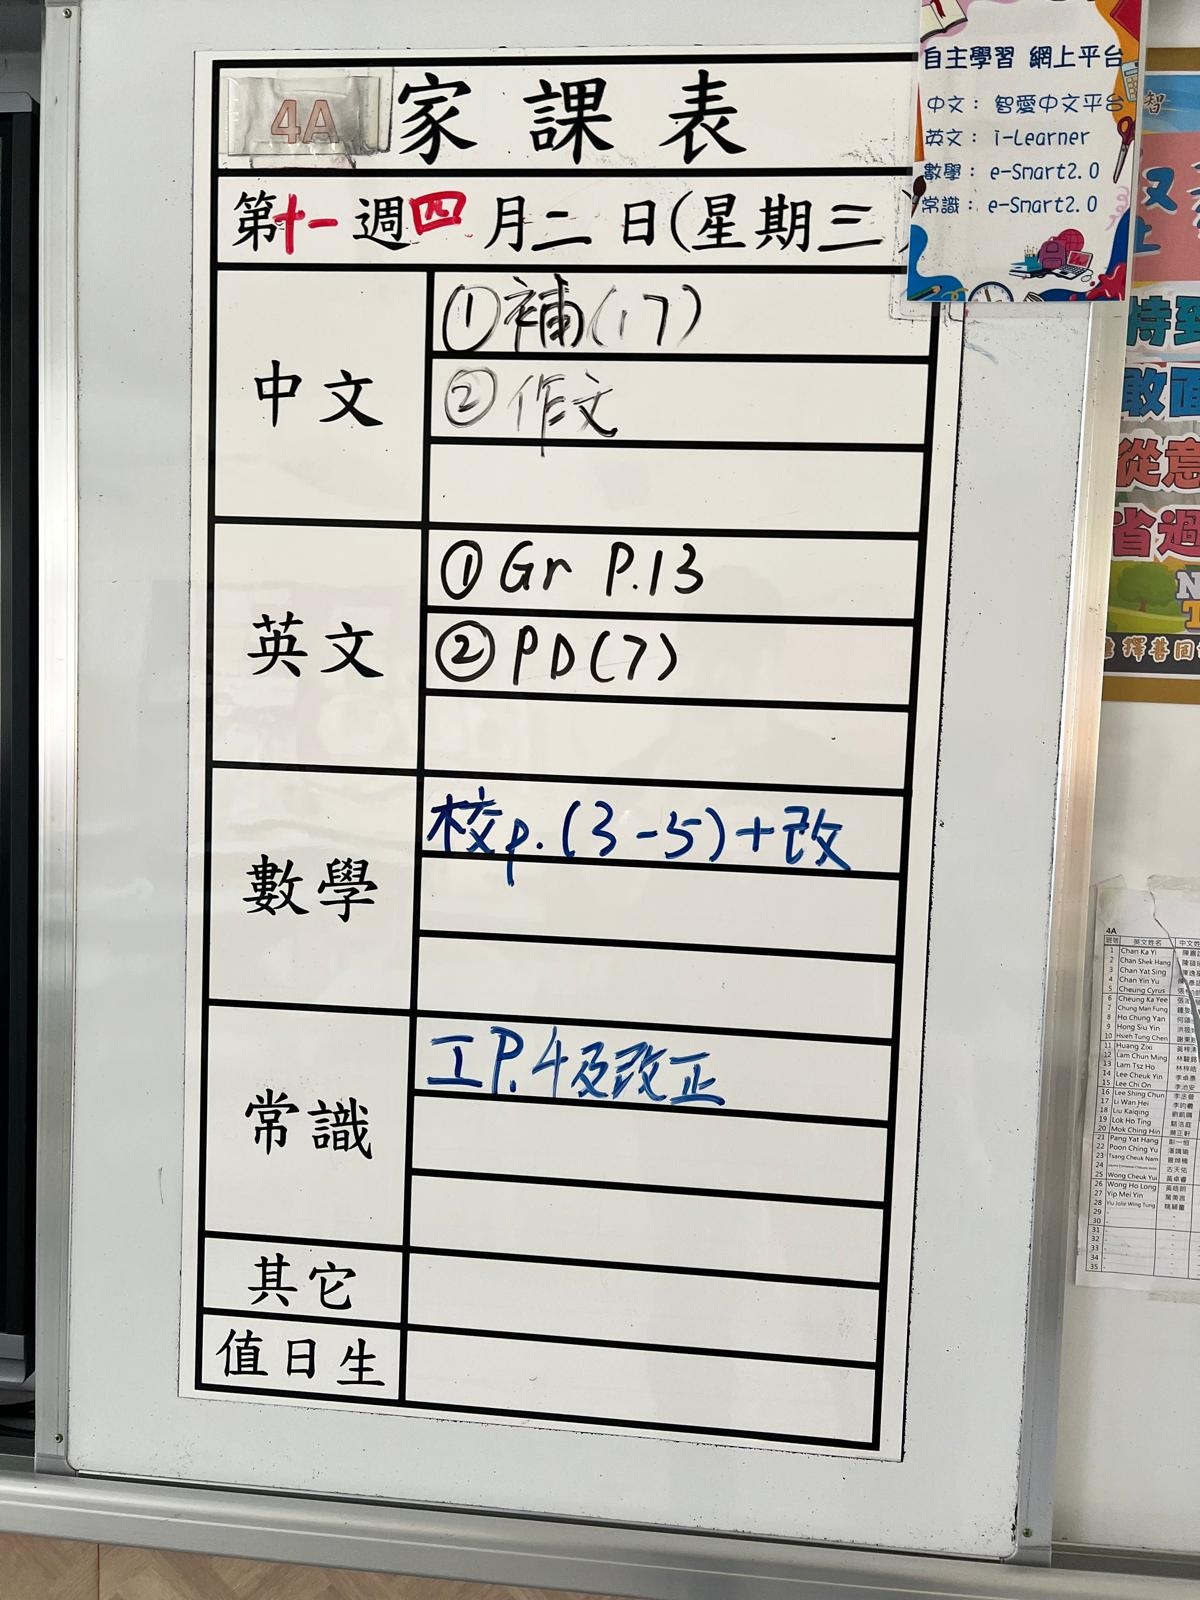 4A 家課表
第十一週四月二日(星期三)
中文
①補(17)
②作文
英文
①Gr P.13
②PD(7)
數學
校p.(3-5)+改
常識
工P.4及改正
其它
值日生
自主學習 網上平台
中文： 智愛中文平台
英文： i-Learner
數學： e-Smart2.0
常識： e-Smart2.0
智
特
敢面
從意
省過
擇善固
4A
班號 英文姓名 中文姓
1 Chan Ka Yi
2 Chan Shek Hang
3 Chan Yat Sing
4 Chan Yin Yu
5 Cheung Cyrus
6 Cheung Ka Yee
7 Chung Man Fung
8 Ho Chung Yan
9 Hong Siu Yin
10 Hsieh Tung Chen
11 Huang Zixi
12 Lam Chun Ming
13 Lam Tsz Ho
14 Lee Cheuk Yin
15 Lee Chi On
16 Lee Shing Chun
17 Li Wan Hei
18 Liu Kaiqing
19 Lok Ho Ting
20 Mok Ching Hin
21 Pang Yat Hang
22 Poon Ching Yu
23 Tsang Cheuk Nam
24
25 Wong Cheuk Yui
26 Wong Ho Long
27 Yip Mei Yin
28 Yiu Jolie Wing Tung
29 -
30 -
31 -
32 -
33 -
34 -
35 -